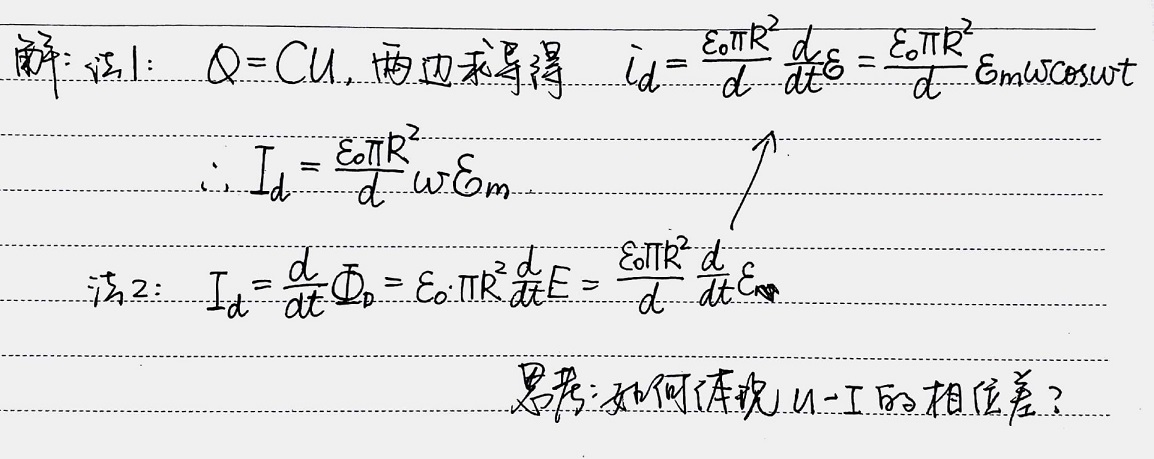 解: 法1: Q=CU, 两边求导得 i_d = \frac{ε_0πR^2}{d} \frac{d}{dt}ℰ = \frac{ε_0πR^2}{d} ℰ_mωcosωt
∴ I_d = \frac{ε_0πR^2}{d} ωℰ_m
法2: I_d = \frac{d}{dt}Φ_D = ε_0·πR^2 \frac{d}{dt}E = \frac{ε_0πR^2}{d} \frac{d}{dt}ℰ
思考: 如何体现 U-I 的相位差?